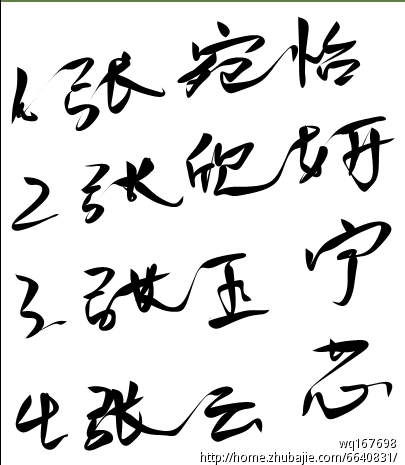 1.张宛怡
2.张欣妍
3.张玉宁
4.张云芯
wq167698
http://home.zhubajie.com/6640831/